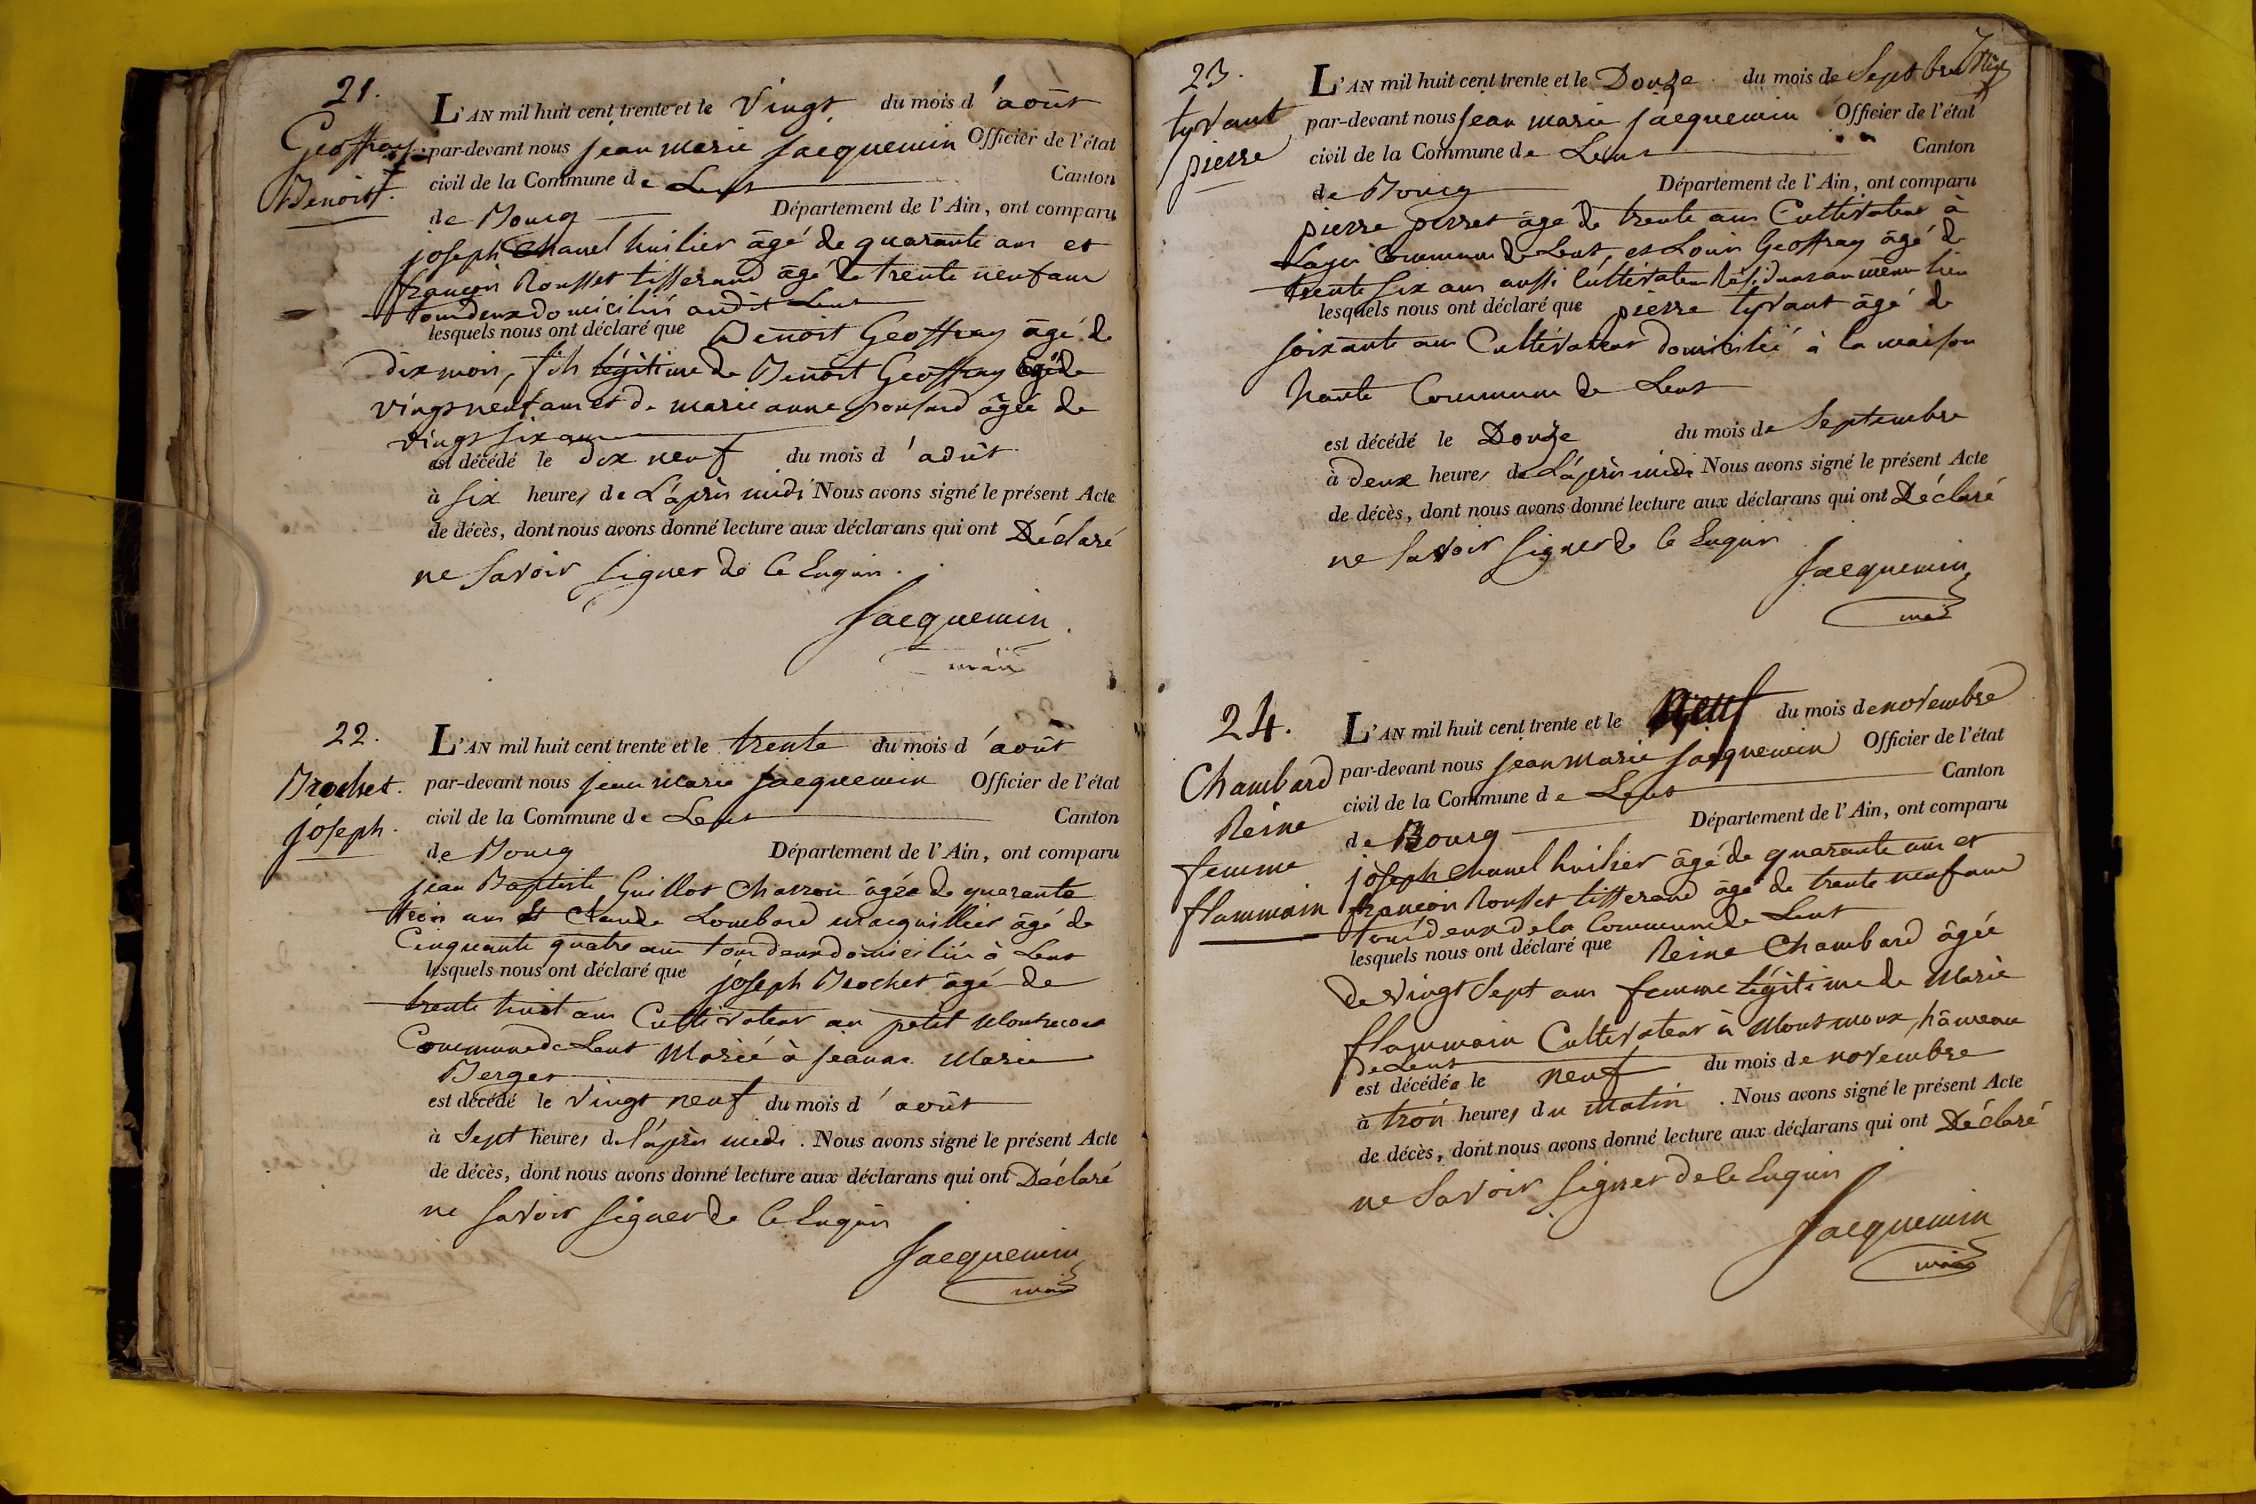 21.
Geoffray
Benoist.
L'AN mil huit cent trente et le vingt du mois d'août
par-devant nous jean marie Jacquemin Officier de l'état
civil de la Commune de Lent Canton
de Bourg Département de l'Ain, ont comparu
joseph Chanel huilier âgé de quarante ans et
françois Rousset tisserand âgé de trente neuf ans
tous deux domiciliés audit Lent
lesquels nous ont déclaré que Benoit Geoffray âgé de
dix mois, fils légitime de Benoit Geoffray âgé de
vingt neuf ans et de marie anne ponsard âgée de
vingt six ans
est décédé le dix neuf du mois d'août
à six heures de L'après midi Nous avons signé le présent Acte
de décès, dont nous avons donné lecture aux déclarans qui ont Déclaré
ne savoir signer de ce Enquis.
Jacquemin
maire
22.
Brochet.
joseph.
L'AN mil huit cent trente et le trente du mois d'août
par-devant nous jean marie Jacquemin Officier de l'état
civil de la Commune de Lent Canton
de Bourg Département de l'Ain, ont comparu
jean Baptiste Guillot Charron âgée de quarante
trois ans Et Claude Lombard marguillier âgé de
Cinquante quatre ans tous deux domiciliés à Lent
lesquels nous ont déclaré que joseph Brochet âgé de
trente huit ans Cultivateur au petit Montracout
Commune de Lent Marié à jeanne Marie
Berger
est décédé le vingt neuf du mois d'août
à sept heures de l'après midi. Nous avons signé le présent Acte
de décès, dont nous avons donné lecture aux déclarans qui ont Déclaré
ne savoir signer de ce Enquis
Jacquemin
maire
23.
tyvant
pierre
L'AN mil huit cent trente et le Douze du mois de Septbre
par-devant nous jean marie jacquemin Officier de l'état
civil de la Commune de Lent Canton
de Bourg Département de l'Ain, ont comparu
pierre perret âgé de trente ans Cultivateur à
Commune de Lent, et Louis Geoffray âgé de
trente six ans aussi Cultivateur Résidant au même lieu
lesquels nous ont déclaré que pierre tyvant âgé de
soixante ans Cultivateur domicilié à la maison
haute Commune de Lent
est décédé le Douze du mois de Septembre
à deux heures de L'après midi Nous avons signé le présent Acte
de décès, dont nous avons donné lecture aux déclarans qui ont Déclaré
ne savoir signer de ce Enquis
Jacquemin
maire
24.
Chambard
Reine
femme
flammain
L'AN mil huit cent trente et le Neuf du mois de novembre
par-devant nous jean marie jacquemin Officier de l'état
civil de la Commune de Lent Canton
de Bourg Département de l'Ain, ont comparu
joseph Chanel huilier âgé de quarante ans et
françois Rousset tisserand âgé de trente neuf ans
tous deux de la Commune de Lent
lesquels nous ont déclaré que Reine Chambard âgée
de vingt Sept ans femme légitime de Marie
flammain Cultivateur à Montmoux, hâmeau
de Lent
est décédée le neuf du mois de novembre
à trois heures du matin. Nous avons signé le présent Acte
de décès, dont nous avons donné lecture aux déclarans qui ont Déclaré
ne savoir signer de ce Enquis
Jacquemin
maire